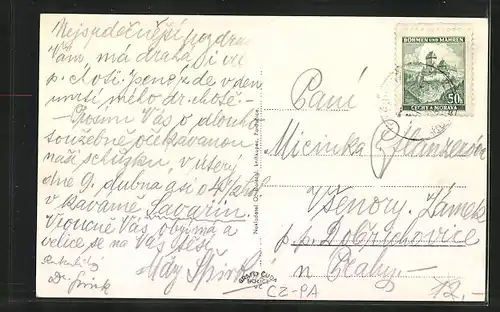 Nejsrdečnější pozdrav
Vám má drahá i vš.
p. choti. Jsem zde v den
úmrtí mého dr. chotě. -
Prosím Vás o dlouho
toužebně očekávanou
naši schůzku v úterý
dne 9. dubna as o 4
v kavárně Savarin.
Vroucně Vás objímá a
velice se na Vás těší
Máy
Dr.
BÖHMEN UND MÄHREN
ČECHY A MORAVA
50
Paní
Micinka
Všenory. Zámek
p. p. Dobřichovice
u Prahy. -
CZ-PA
12,-